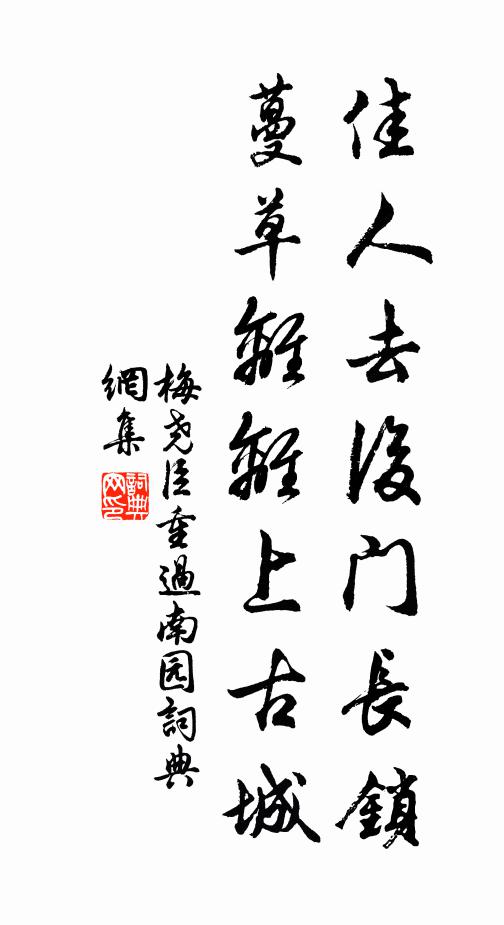 佳人去後门長鎖
蔓草離離上古城
梅尧臣重過南园詞典
網集
詞典
网印